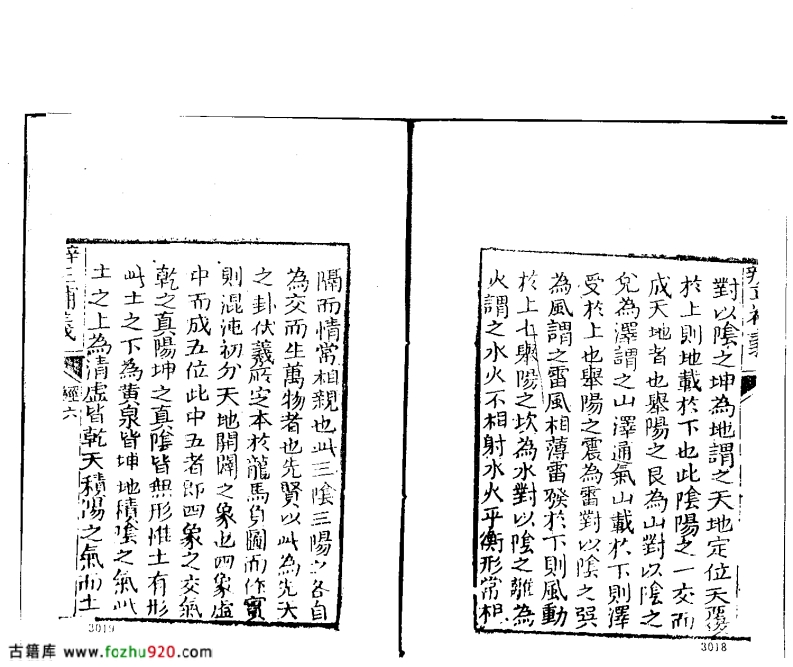 對以陰之坤為地謂之天地定位天覆
於上則地載於下也此陰陽之一交而
成天地者也舉陽之艮為山對以陰之
兌為澤謂之山澤通氣山載於下則澤
受於上也舉陽之震為雷對以陰之巽
為風謂之雷風相薄雷發於下則風動
於上也舉陽之坎為水對以陰之離為
火謂之水火不相射水火平衡形常相
3018
隔而情常相親也此三陰三陽之各自
為交而生萬物者也先賢以此為先天
之卦伏羲所定本於龍馬負圖而作實
則混沌初分天地開闢之象也四象虛
中而成五位此中五者即四象之交氣
乾之真陽坤之真陰皆無形惟土有形
此土之下為黃泉皆坤地積陰之氣此
土之上為清虛皆乾天積陽之氣而土
辯正補義
經六
3019
古籍库 www.fozhu920.com